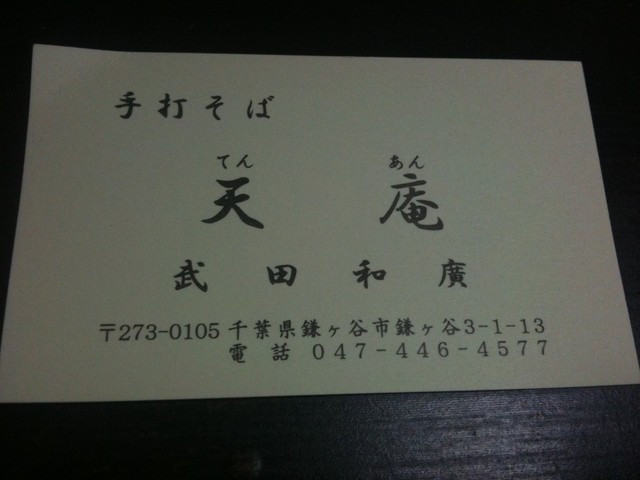 手打そば
てん あん
天庵
武田和廣
〒273-0105 千葉県鎌ヶ谷市鎌ヶ谷3-1-13
電話 047-446-4577